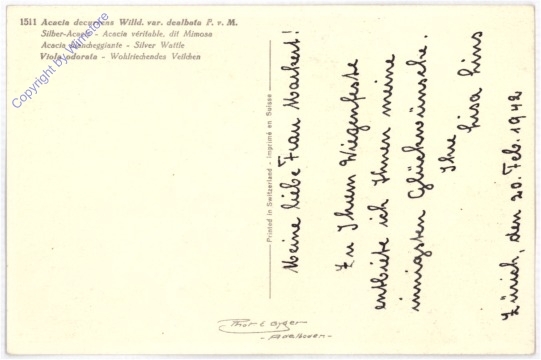 1511 Acacia decurrens Willd. var. dealbata F. v. M.
Silber-Acacie - Acacia véritable, dit Mimosa
Acacia biancheggiante - Silver Wattle
Viola odorata - Wohlriechendes Veilchen
Copyright by Winstore
Printed in Switzerland - Imprimé en Suisse
Meine liebe Frau Markert!
Zu Ihrem Wiegenfeste
entbiete ich Ihnen meine
innigsten Glückwünsche.
Ihre Lisa Lins
Zürich, den 20. Feb. 1942
Thor E. Gyger
- Adelboden -